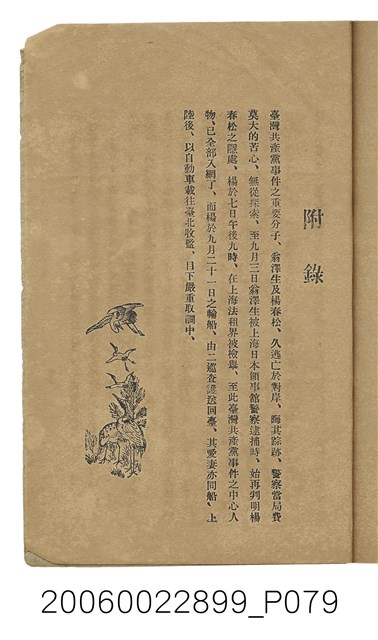 附錄
臺灣共產黨事件之重要分子、翁澤生及楊春松、久逃亡於對岸、晦其踪跡、警察當局費
莫大的苦心、無從探索、至九月三日翁澤生被上海日本領事館警察逮捕時、始再判明楊
春松之隱處、楊於七日午後九時、在上海法租界被檢舉、至此臺灣共產黨事件之中心人
物、已全部入網了、而楊於九月二十一日之輪船、由二巡查護送回臺、其愛妻亦同船、上
陸後、以自動車載往臺北收監、目下嚴重取調中、
20060022899_P079